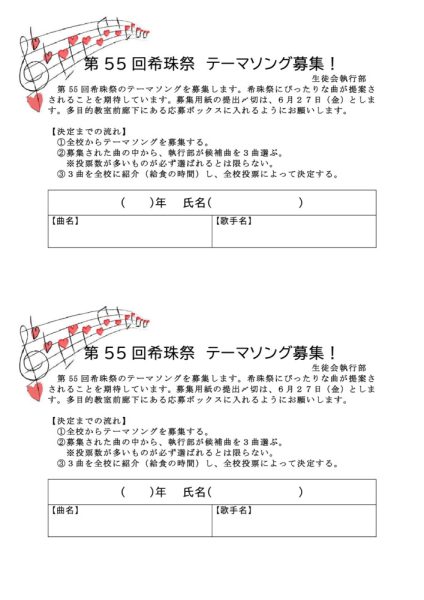 第５５回希珠祭 テーマソング募集！
生徒会執行部
第 55 回希珠祭のテーマソングを募集します。希珠祭にぴったりな曲が提案さ
されることを期待しています。募集用紙の提出〆切は、６月２７日（金）としま
す。多目的教室前廊下にある応募ボックスに入れるようにお願いします。
【決定までの流れ】
①全校からテーマソングを募集する。
②募集された曲の中から、執行部が候補曲を３曲選ぶ。
※投票数が多いものが必ず選ばれるとは限らない。
③３曲を全校に紹介（給食の時間）し、全校投票によって決定する。
(　　)年　氏名(　　　　　　　　)
【曲名】　【歌手名】
第５５回希珠祭 テーマソング募集！
生徒会執行部
第 55 回希珠祭のテーマソングを募集します。希珠祭にぴったりな曲が提案さ
されることを期待しています。募集用紙の提出〆切は、６月２７日（金）としま
す。多目的教室前廊下にある応募ボックスに入れるようにお願いします。
【決定までの流れ】
①全校からテーマソングを募集する。
②募集された曲の中から、執行部が候補曲を３曲選ぶ。
※投票数が多いものが必ず選ばれるとは限らない。
③３曲を全校に紹介（給食の時間）し、全校投票によって決定する。
(　　)年　氏名(　　　　　　　　)
【曲名】　【歌手名】